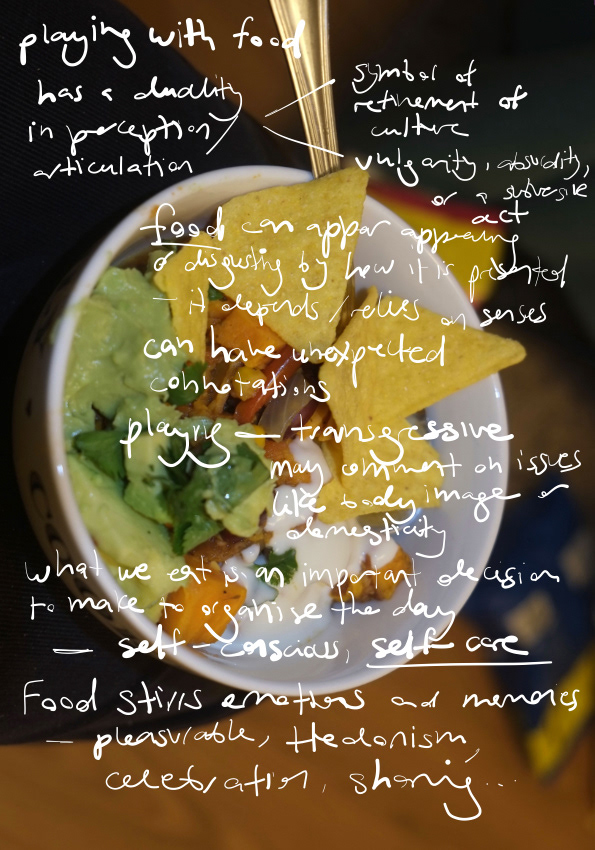 playing with food
has a duality
in perception
articulation
symbol of
refinement of
culture
vulgarity, absurdity,
or a subversive
act
food can appar appealing
or disgusting by how it is presented
– it depends/relies on senses
can have unexpected
connotations
playing — transgressive
may comment on issues
like body image or
domesticity
what we eat is an important decision
to make to organise the day
— self-conscious, self care
Food stirs emotions and memories
— pleasurable, Hedonism,
celebration, sharing...